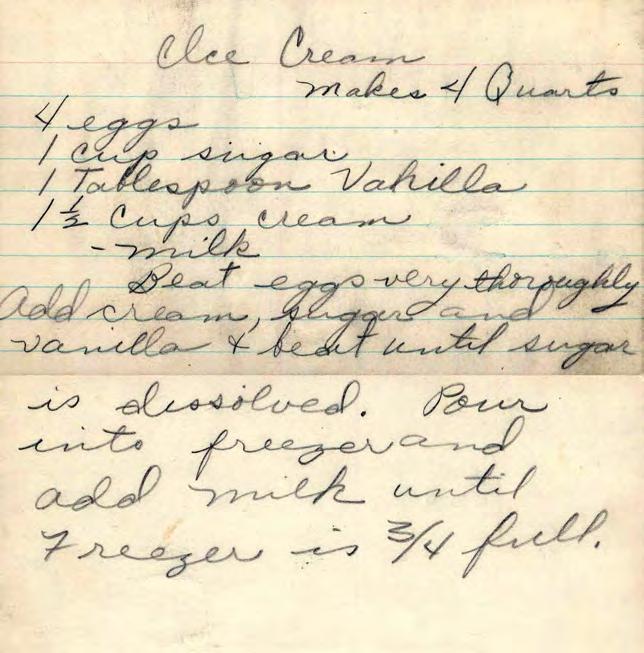 Ice Cream
Makes 4 Quarts
4 eggs
1 cup sugar
1 Tablespoon Vanilla
1 ½ Cups cream
- milk
Beat eggs very thoroughly
Add cream, sugar and
vanilla & beat until sugar
is dissolved. Pour
into freezer and
add milk until
Freezer is 3/4 full.